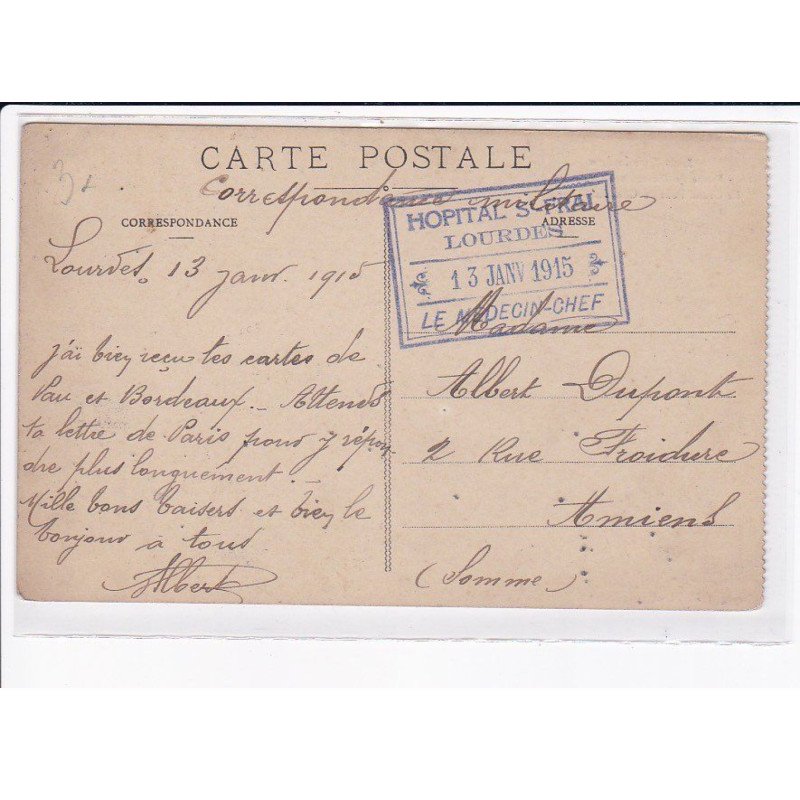 3
CARTE POSTALE
Correspondance militaire
CORRESPONDANCE
ADRESSE
HOPITAL St FRAI
LOURDES
13 JANV 1915
LE MÉDECIN-CHEF
Lourdes, 13 janv. 1915
j'ai bien reçu tes cartes de
Pau et Bordeaux. Attends
ta lettre de Paris pour y répon-
dre plus longuement.
Mille bons baisers et bien le
bonjour à tous
Albert
Madame
Albert Dupont
2 Rue Froidure
Amiens
(Somme)